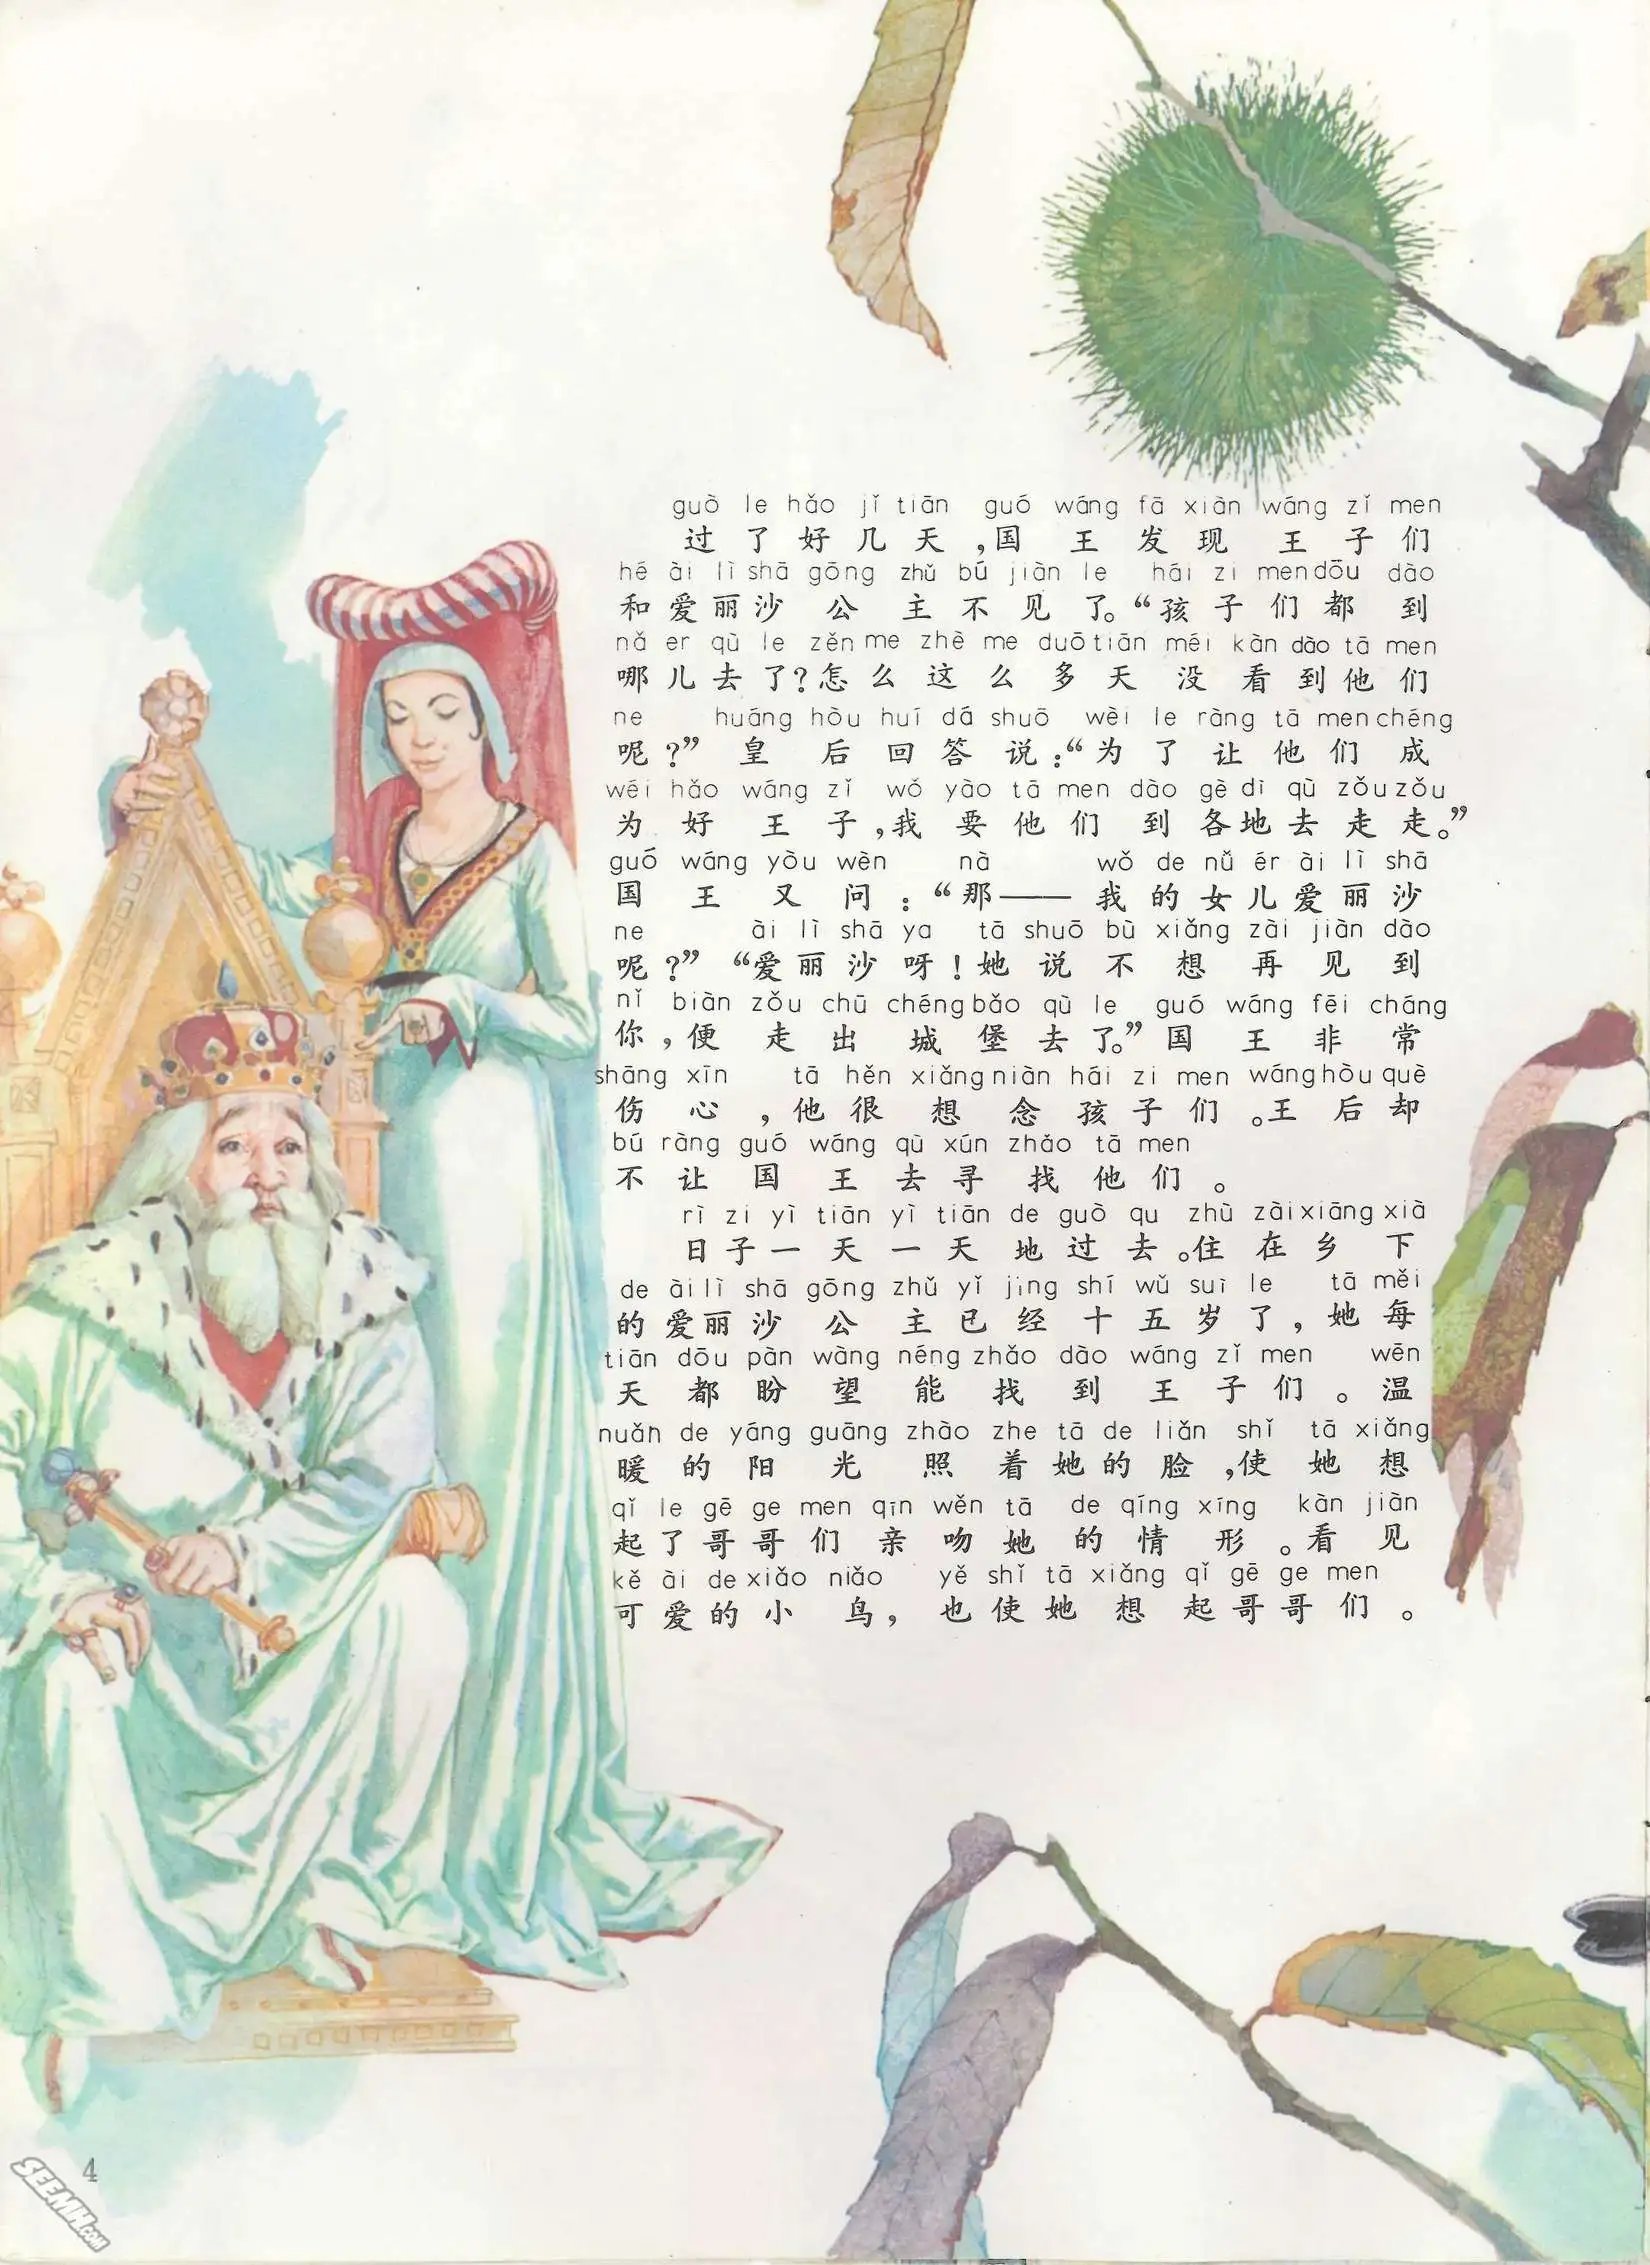 guò le hǎo jǐ tiān guó wáng fā xiàn wáng zǐ men
过了好几天,国王发现王子们
hé ài lì shā gōng zhǔ bú jiàn le hái zi men dōu dào
和爱丽沙公主不见了。“孩子们都到
nǎ er qù le zěn me zhè me duō tiān méi kàn dào tā men
哪儿去了?怎么这么多天没看到他们
ne huáng hòu huí dá shuō wèi le ràng tā men chéng
呢?”皇后回答说:“为了让他们成
wéi hǎo wáng zǐ wǒ yào tā men dào gè dì qù zǒu zǒu
为好王子,我要他们到各地去走走。”
guó wáng yòu wèn nà wǒ de nǚ ér ài lì shā
国王又问:“那——我的女儿爱丽沙
ne ài lì shā ya tā shuō bù xiǎng zài jiàn dào
呢?”“爱丽沙呀!她说不想再见到
nǐ biàn zǒu chū chéng bǎo qù le guó wáng fēi cháng
你,便走出城堡去了。”国王非常
shāng xīn tā hěn xiǎng niàn hái zi men wáng hòu què
伤心,他很想念孩子们。王后却
bú ràng guó wáng qù xún zhǎo tā men
不让国王去寻找他们。
rì zi yì tiān yì tiān de guò qu zhù zài xiāng xià
日子一天一天地过去。住在乡下
de ài lì shā gōng zhǔ yǐ jing shí wǔ suì le tā měi
的爱丽沙公主已经十五岁了,她每
tiān dōu pàn wàng néng zhǎo dào wáng zǐ men wēn
天都盼望能找到王子们。温
nuǎn de yáng guāng zhào zhe tā de liǎn shǐ tā xiǎng
暖的阳光照着她的脸,使她想
qǐ le gē ge men qīn wěn tā de qíng xíng kàn jiàn
起了哥哥们亲吻她的情形。看见
kě ài de xiǎo niǎo yě shǐ tā xiǎng qǐ gē ge men
可爱的小鸟,也使她想起哥哥们。
4
SEEMH.COM